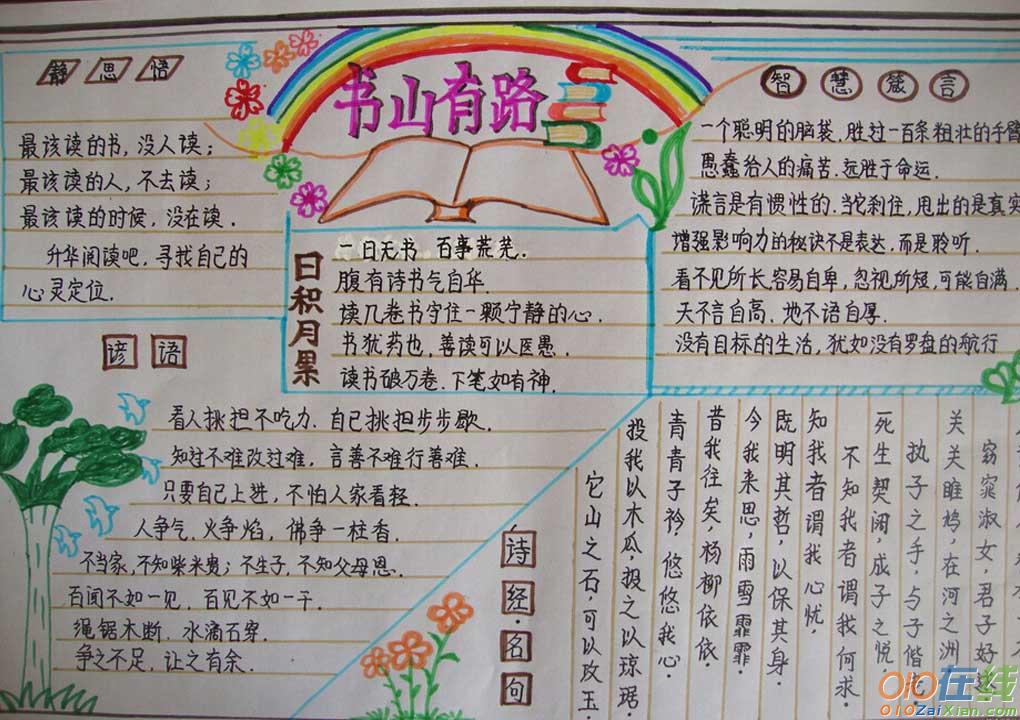 静思悟
最该读的书,没人读;
最该读的人,不去读;
最该读的时候,没在读.
升华阅读吧,寻找自己的
心灵定位.
书山有路
日积月累
一日无书 百事荒芜.
腹有诗书气自华.
读几卷书守住一颗宁静的心.
书犹药也,善读可以医愚.
读书破万卷.下笔如有神.
智慧箴言
一个聪明的脑袋,胜过一百条粗壮的手臂
愚蠢给人的痛苦.远胜于命运.
谎言是有惯性的.当它刹住,甩出的是真实
增强影响力的秘诀不是表达,而是聆听.
看不见所长,容易自卑,忽视所短,可能自满.
天不言自高、地不语自厚.
没有目标的生活,犹如没有罗盘的航行
谚语
看人挑担不吃力.自己挑担步步歇.
知过不难改过难,言善不难行善难.
只要自己上进,不怕人家看轻.
人争气,火争焰,佛争一柱香.
不当家,不知柴米贵;不生子,不知父母恩.
百闻不如一见,百见不如一干.
绳锯木断.水滴石穿.
争之不足,让之有余.
诗经·名句
窈窕淑女,君子好逑
关关雎鸠,在河之洲
执子之手,与子偕老
死生契阔,成子之悦.
不知我者谓我何求
知我者谓我心忧,
既明其哲,以保其身.
今我来思,雨雪霏霏.
昔我往矣,杨柳依依.
青青子衿,悠悠我心.
投我以木瓜.报之以琼琚.
它山之石,可以攻玉.
010在线
010ZaiXian.com